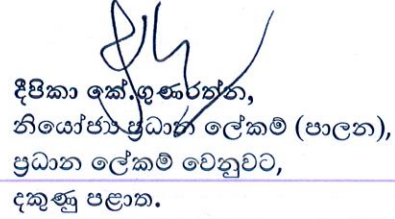 දීපිකා කේ.ගුණරත්න,
නියෝජ්‍ය ප්‍රධාන ලේකම් (පාලන),
ප්‍රධාන ලේකම් වෙනුවට,
දකුණු පළාත.